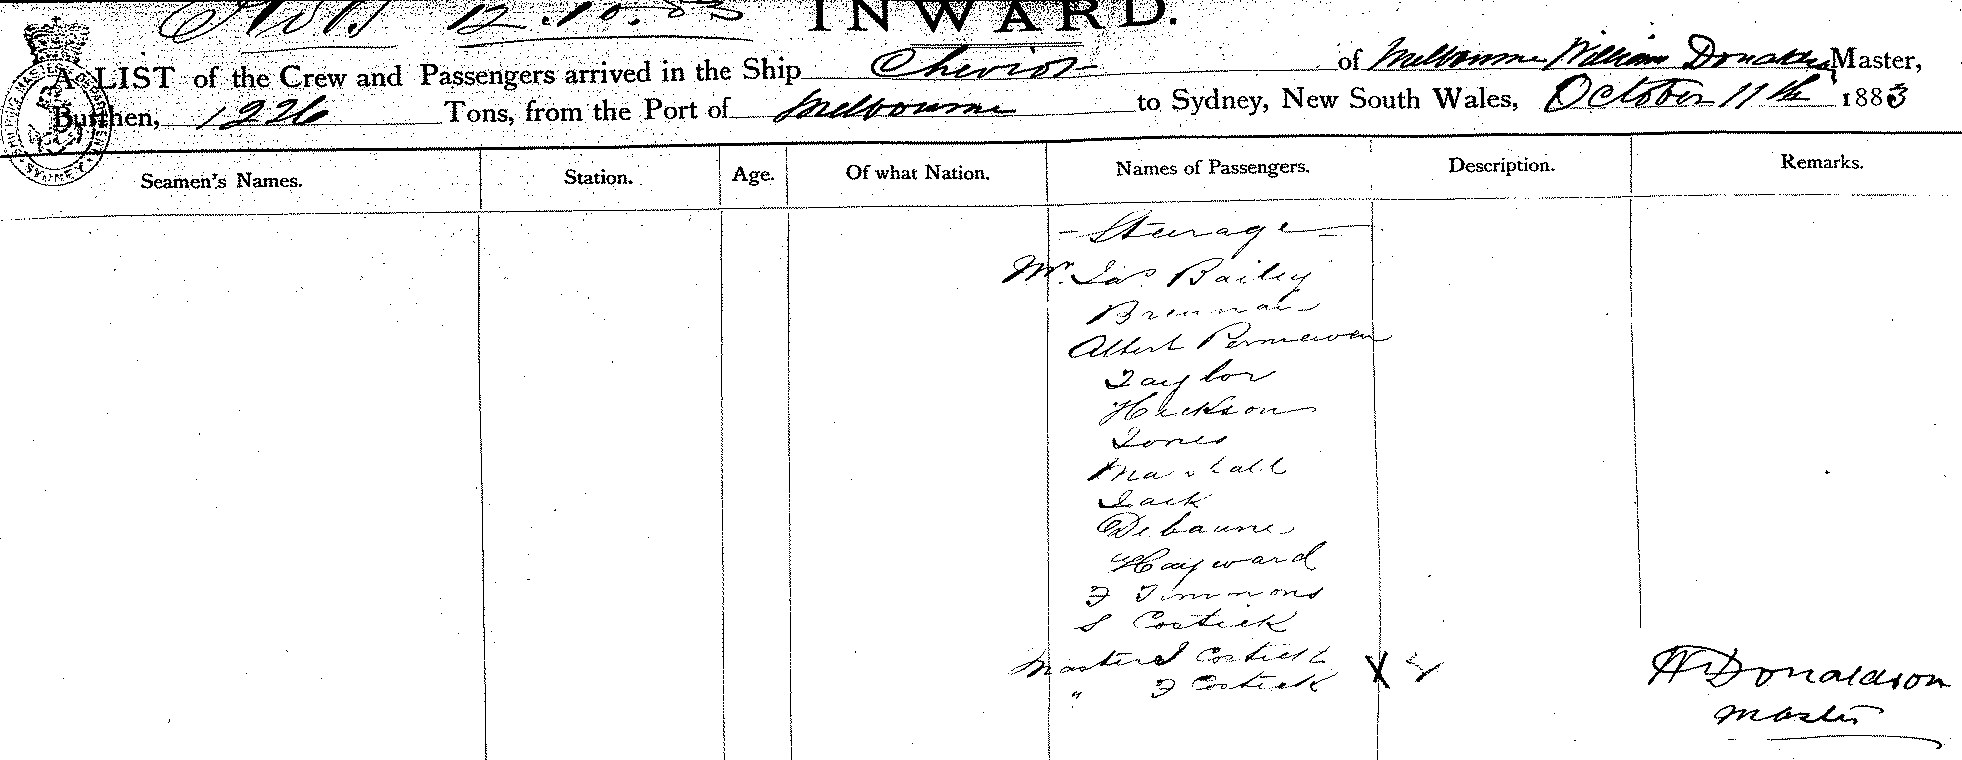 12.10.83 INWARD.
A LIST of the Crew and Passengers arrived in the Ship Cheviot of Melbourne William Donaldson Master,
Burthen, 1226 Tons, from the Port of Melbourne to Sydney, New South Wales, October 11th 1883
Seamen's Names. Station. Age. Of what Nation. Names of Passengers. Description. Remarks.
Steerage
Mr. Jas Bailey
Brennan
Albert Permewan
Taylor
Hickson
Jones
Marshall
Jack
Debaune
Hayward
F Timmons
S Costick
Master J Costick
" F Costick X
W Donaldson
Master